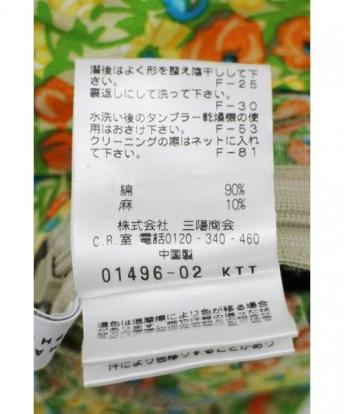 濯後はよく形を整え陰干しして下
さい。 F-25
裏返しにして洗って下さい。
F-30
水洗い後のタンブラー乾燥機の使
用はおさけ下さい。 F-53
クリーニングの際はネットに入れ
て下さい。 F-81
綿 90%
麻 10%
株式会社 三陽商会
C.R.室 電話0120-340-460
中国製
01496-02 KTT
濃色は湿摩擦により色が移る場合
汗により色移りすることがあり